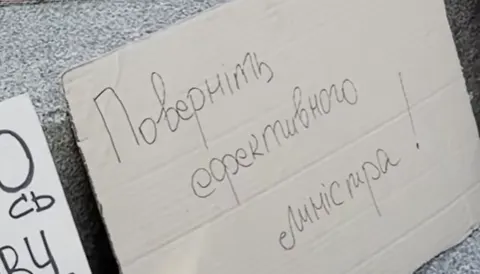 Поверніть
ефективного
міністра!
О
сь
ву